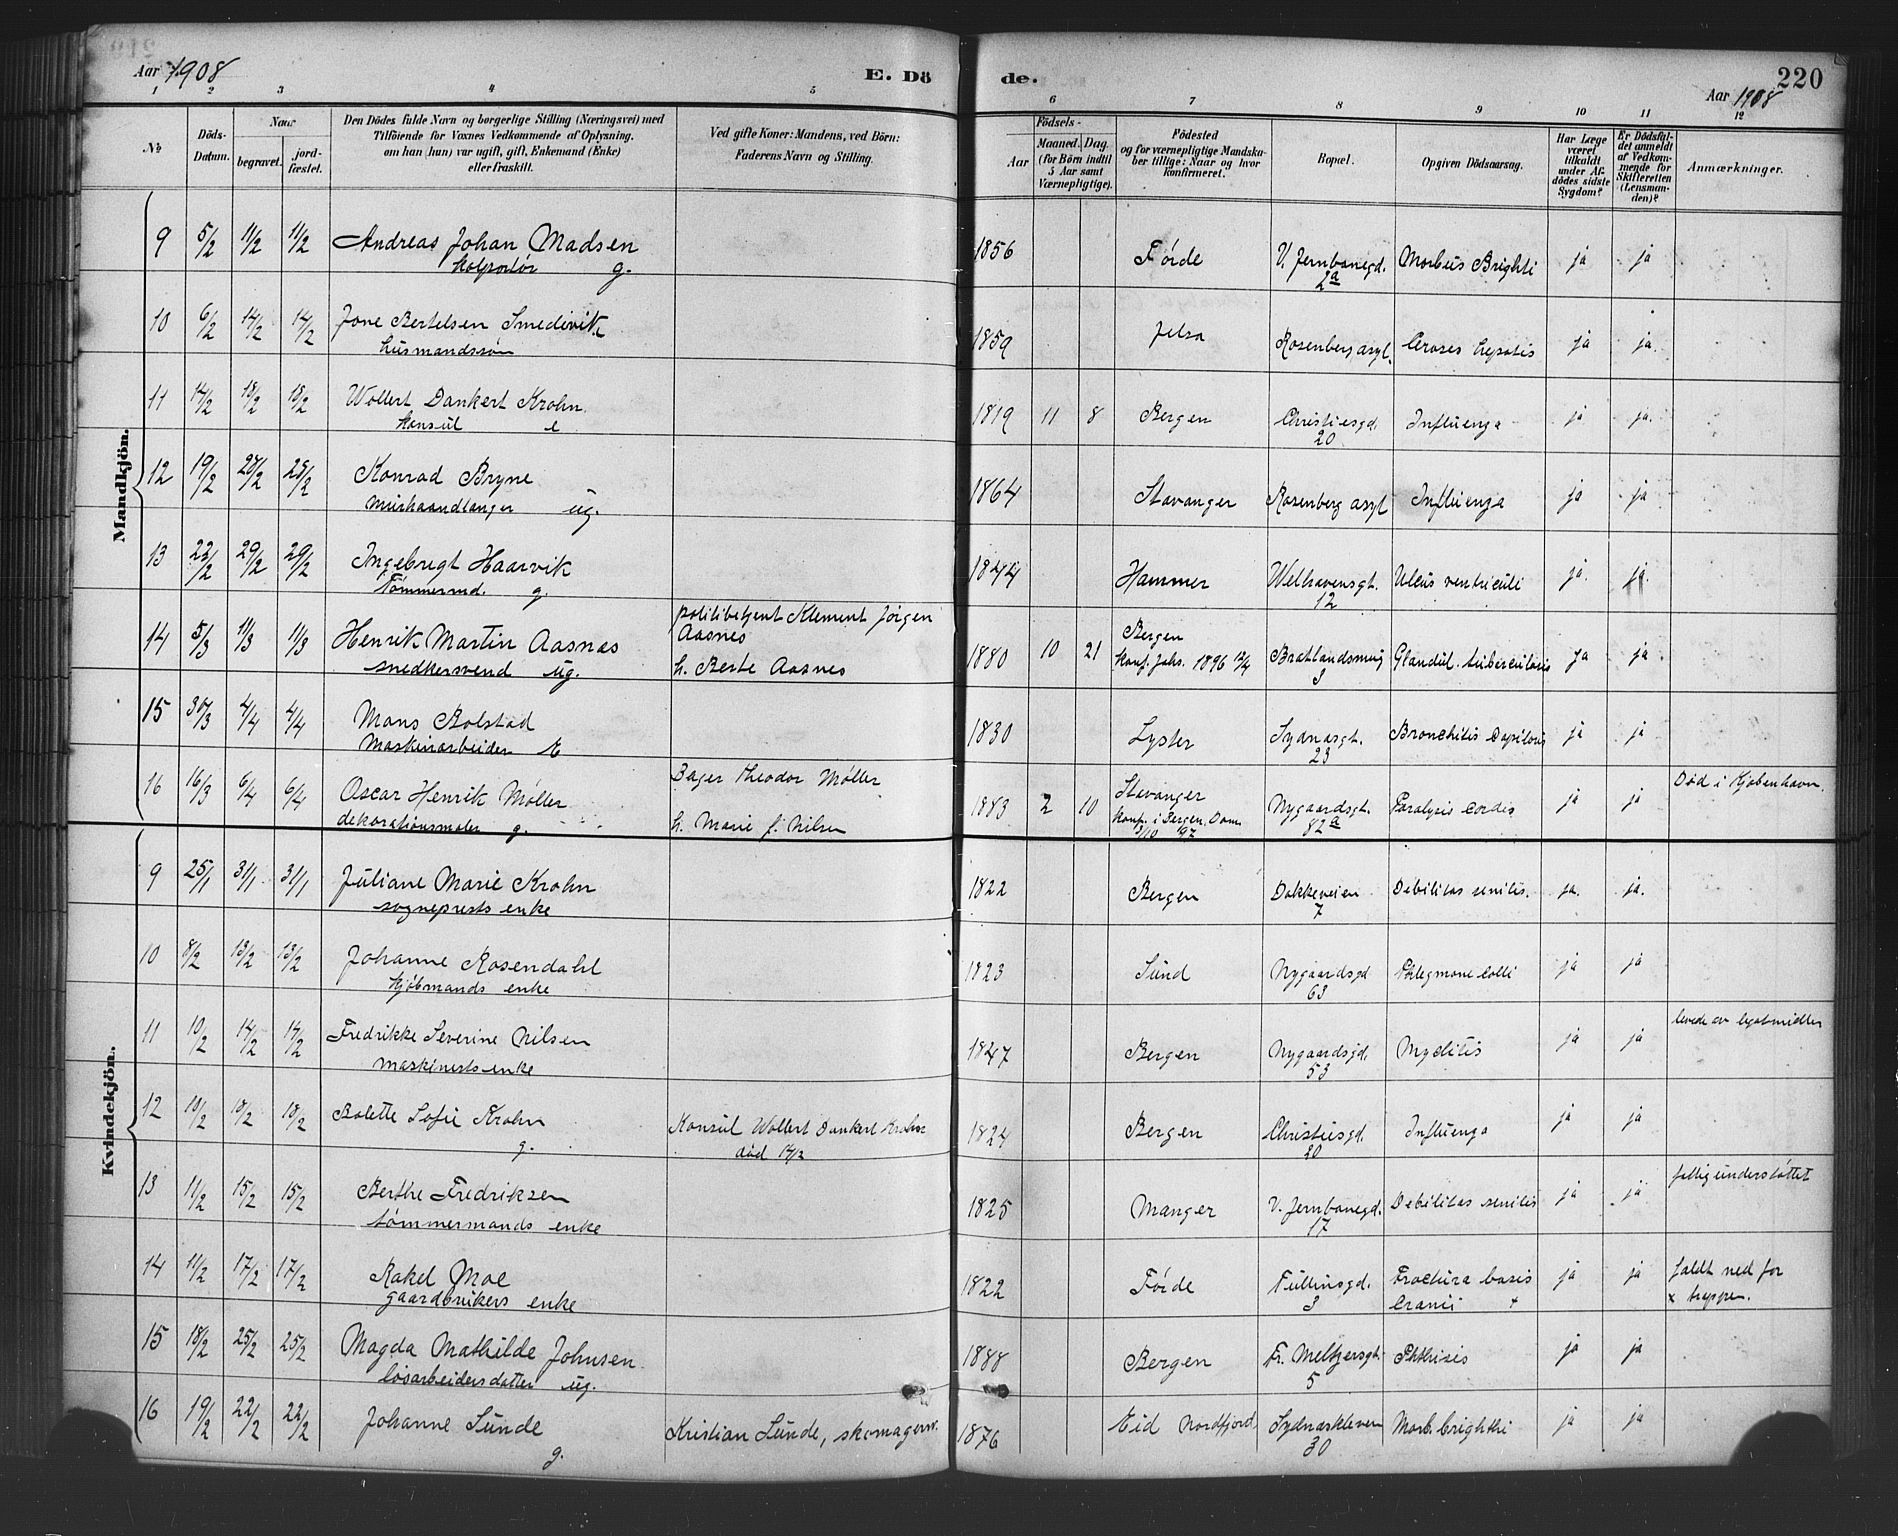 220
Aar 1908
E. Dö de.
Aar 1908
1 2 3 4 5 6 7 8 9 10 11 12
№
Döds-Datum.
Naar
begravet.
jord-fæstet.
Den Dödes fulde Navn og borgerlige Stilling (Næringsvei) med
Tilföiende for Voxnes Vedkommende af Oplysning,
om han (hun) var ugift, gift, Enkemand (Enke)
eller fraskilt.
Ved gifte Koner: Mandens, ved Börn:
Faderens Navn og Stilling.
Födsels-
Aar
Maaned. Dag.
(for Börn indtil
5 Aar samt
Værnepligtige).
Födested
og for værnepligtige Mandska-
ber tillige: Naar og hvor
konfirmeret.
Bopæl.
Opgiven Dödsaarsag.
Har Læge
været
tilkaldt
under Af-
dödes sidste
Sygdom?
Er Dödsfal-
det anmeldt
af Vedkom-
mende for
Skifteretten
(Lensman-
den)?
Anmærkninger.
Mandkjön.
9 5/2 11/2 11/2 Andreas Johan Madsen 1856 Førde V. Jernbanegd. Morbus Brighti ja ja
kolportør g. 2a
10 6/2 14/2 14/2 Jone Bertelsen Smedevik 1859 Jelsa Rosenberg asyl. hepatis ja ja.
husmandssøn
11 14/2 18/2 18/2 Wollert Dankert Krohn. 1819 11 8 Bergen Christiesgd. Influenza ja ja.
konsul e 20
12 19/2 25/2 25/2 Konrad Bryne 1864 Stavanger Rosenberg asyl Influenza ja ja
murhaandlanger ug.
13 22/2 29/2 29/2 Ingebregt Haarvik 1844 Hammer Welhavensgt. Ulcus ventriculi ja. ja.
Tømmermd. g. 12
14 5/3 11/3 11/3 Henrik Martin Aasnas politibetjent Klement Jørgen
Aasnes
snedkersvend ug. h. Berte Aasnes 1880 10 21 Bergen
konf. Johs. 1896 12/4 3 Glandul. tuberculosis ja ja
15 30/3 4/4 4/4 Mons Bolstad 1830 Lyster Sydnæsgt. Bronchitis ja ja
Maskinarbeider E 23
16 16/3 6/4 6/4 Oscar Henrik Møller Bager Theodor Møller 1883 2 10 Stavanger Nygaardsgt. Paralysis cordis ja ja Død i Kjøbenhavn.
dekorationsmaler g. h. Marie f. Nilsen konf. i Bergen, Dom. 82a
3/10 97
Kvindekjön.
9 25/1 31/1 31/1 Juliane Marie Krohn 1822 Bergen Dokkeveien Debilitas senilis. ja. ja.
sogneprests enke 7
10 8/2 13/2 13/2 Johanne Rosendahl 1823 Sund Nygaardsgd Phlegmone colli ja ja
kjøbmands enke 63
11 10/2 14/2 14/2 Fredrikke Severine Nilsen 1847 Bergen Nygaardsgd. Myelitis ja ja levede av legatmidler
maskinists enke 53
12 10/2 18/2 18/2 Bolette Sofie Krohn Konsul Wollert Dankert Krohn 1824 Bergen Christiesgd. Influenza ja ja
g. død 14/2 20
13 11/2 15/2 15/2 Berthe Fredriksen 1825 Manger V. Jernbanegd. Debilitas senilis ja ja fattigunderstøttet
tømmermands enke 17
14 11/2 17/2 17/2 Rakel Moe 1822 Førde Fullinsgd. Fractura basis ja ja faldt ned for
gaardbrukers enke 3 cranii + x trappen.
15 18/2 25/2 25/2 Magda Mathilde Johnsen 1888 Bergen Fr. Meltzersgt. Phthisis ja ja
løsarbeidersdatter ug. 5
16 19/2 22/2 22/2 Johanne Sunde Kristian Sunde, skomagersv. 1876 Eid Nordfjord Sydnæskleven Morb. brighti ja ja
g. 30